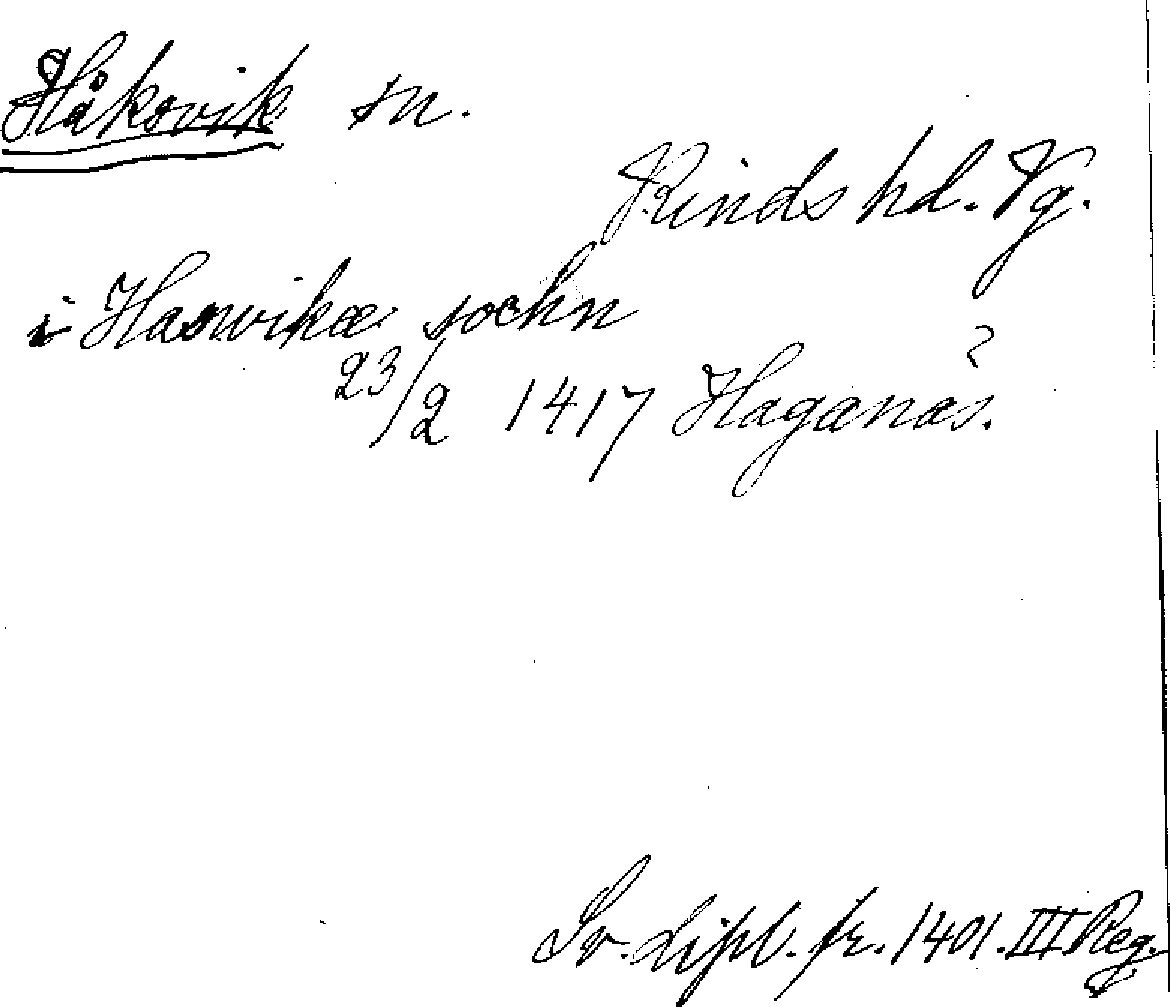 Håksvik sn.
Kinds hd. Vg.
i Haswikæ sochn
23/2 1417 Haganæs.
?
Sv. dipl. fr. 1401. III Reg.